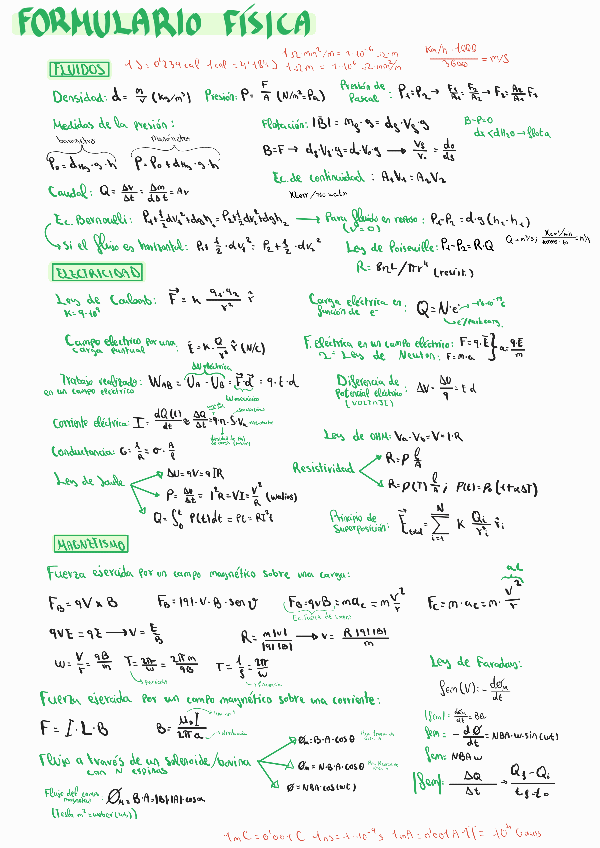 FORMULARIO FÍSICA
1 J = 0'239 cal 1 cal = 4'18 J
1 Ω mm²/m = 1·10⁻⁶ Ω·m
1 Ω m = 1·10⁶ Ω mm²/m
Km/h · 1000 / 3600 = m/s
FLUIDOS
Densidad: d = m/V (Kg/m³) Presión: P = F/A (N/m² = Pa) Presión de Pascal: P₁ = P₂ → F₁/A₁ = F₂/A₂ → F₂ = A₂/A₁ F₁
Medidas de la presión:
barómetro manómetro
P₀ = dHg · g · h P = P₀ + dHg · g · h
Flotación: |B| = mg · g = df · Vf · g
B = F → df · Vf · g = d₀ · V₀ · g
Caudal: Q = ΔV/Δt = Δm/dΔt = Av
Ec. de continuidad: A₁V₁ = A₂V₂
Ec. Bernoulli: P₁ + 1/2 dv₁² + dgh₁ = P₂ + 1/2 dv₂² + dgh₂ → Para fluido en reposo: P₁ - P₂ = d·g (h₂ - h₁)
(v = 0)
Si el flujo es horizontal: P₁ + 1/2 · dv₁² = P₂ + 1/2 · dv₂²
Ley de Poiseuille: P₁ - P₂ = R·Q
R = 8ηL/πr⁴ (resist.)
ELECTRICIDAD
Ley de Coulomb: F = K q₁·q₂/r² r̂
K = 9·10⁹
Carga eléctrica en función de e⁻: Q = N·e
Campo eléctrico por una carga puntual: E = K · Q/r² r̂ (N/C)
F. eléctrica en un campo eléctrico: F = q·E
2ª Ley de Newton: F = m·a
a = q·E/m
Trabajo realizado en un campo eléctrico: WAB = UA - UB = F·d = q·E·d
Diferencia de Potencial eléctrico (VOLTAJE): ΔV = ΔU/q = E d
Corriente eléctrica: I = dQ(t)/dt ≈ ΔQ/Δt = q·n·S·Va
Conductancia: G = 1/R = σ · A/l
Ley de OHM: Va - Vb = V = I·R
Ley de Joule
ΔU = qV = qIR
P = ΔU/Δt = I²R = VI = V²/R (watios)
Q = ∫₀ᵗ P(t)dt = Pt = RI²t
Resistividad
R = ρ l/A
R = ρ(T) l/A ; ρ(t) = ρ₀ (1+αΔT)
Principio de Superposición: E total = Σ i=1 N K Qi/ri² r̂i
MAGNETISMO
Fuerza ejercida por un campo magnético sobre una carga:
FB = qV × B FB = |q|·V·B·sen υ FB = qvB = mac = m v²/r Fc = m·ac = m· v²/r
ac
qvE = qE → v = E/B
R = m|v|/|q||B| → v = R|q||B|/m
w = V/r = qB/m T = 2π/w = 2πm/qB T = 1/f = 2π/w
Ley de Faraday:
fem (V): - dΦm/dt
Fuerza ejercida por un campo magnético sobre una corriente:
F = I·L·B B = μ₀I/2πa
fem = - dΦ/dt = NBA·w·sin(wt)
fem = NBAw
Flujo a través de un solenoide/bovina
con N espiras
Φm = B·A·cosθ
Φm = N·B·A·cosθ
Φ = NBA·cos(wt)
|fem| = ΔΦ/Δt = Φf - Φi/tf - t₀
Flujo del campo magnético: Φm = B·A = |B||A|·cosα
(tesla m² = weber (wb))